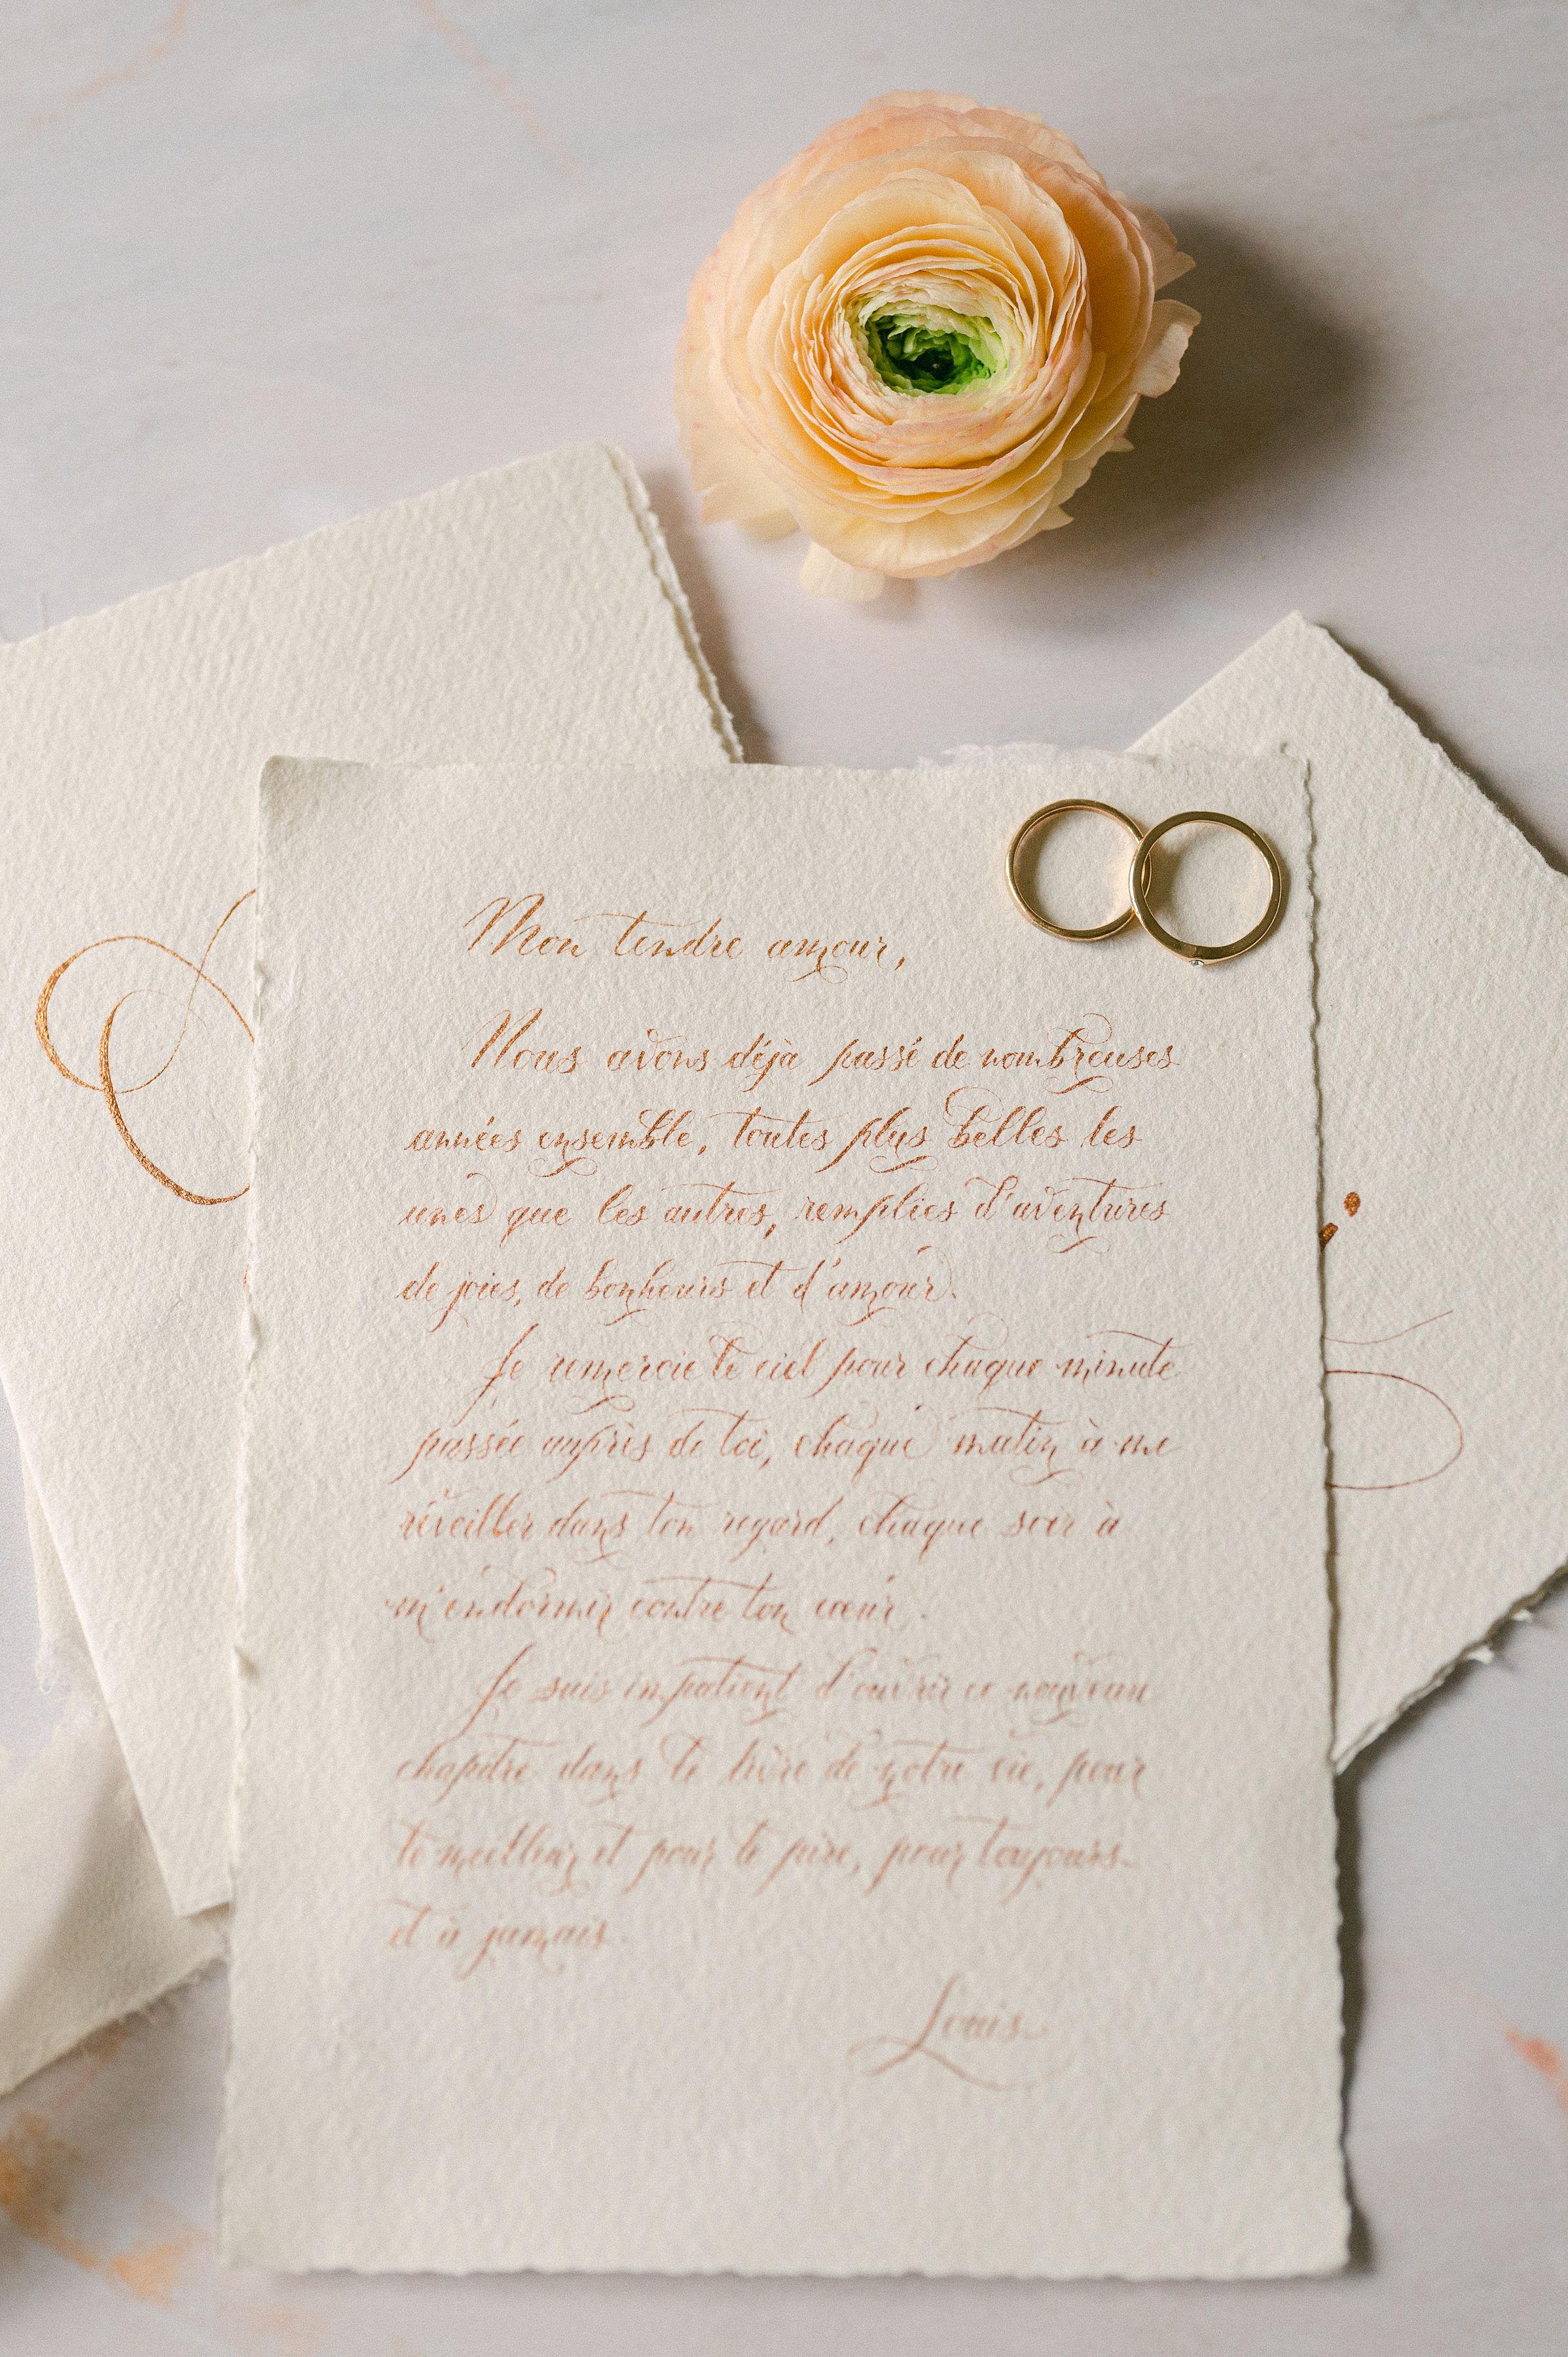 Mon tendre amour,
Nous avons déjà passé de nombreuses
années ensemble, toutes plus belles les
unes que les autres, remplies d'aventures
de joies, de bonheurs et d'amour.
Je remercie le ciel pour chaque minute
passée auprès de toi, chaque matin à me
réveiller dans ton regard, chaque soir à
m'endormir contre ton cœur.
Je suis impatient d'ouvrir ce nouveau
chapitre dans le livre de notre vie, pour
le meilleur et pour le pire, pour toujours
et à jamais.
Louis